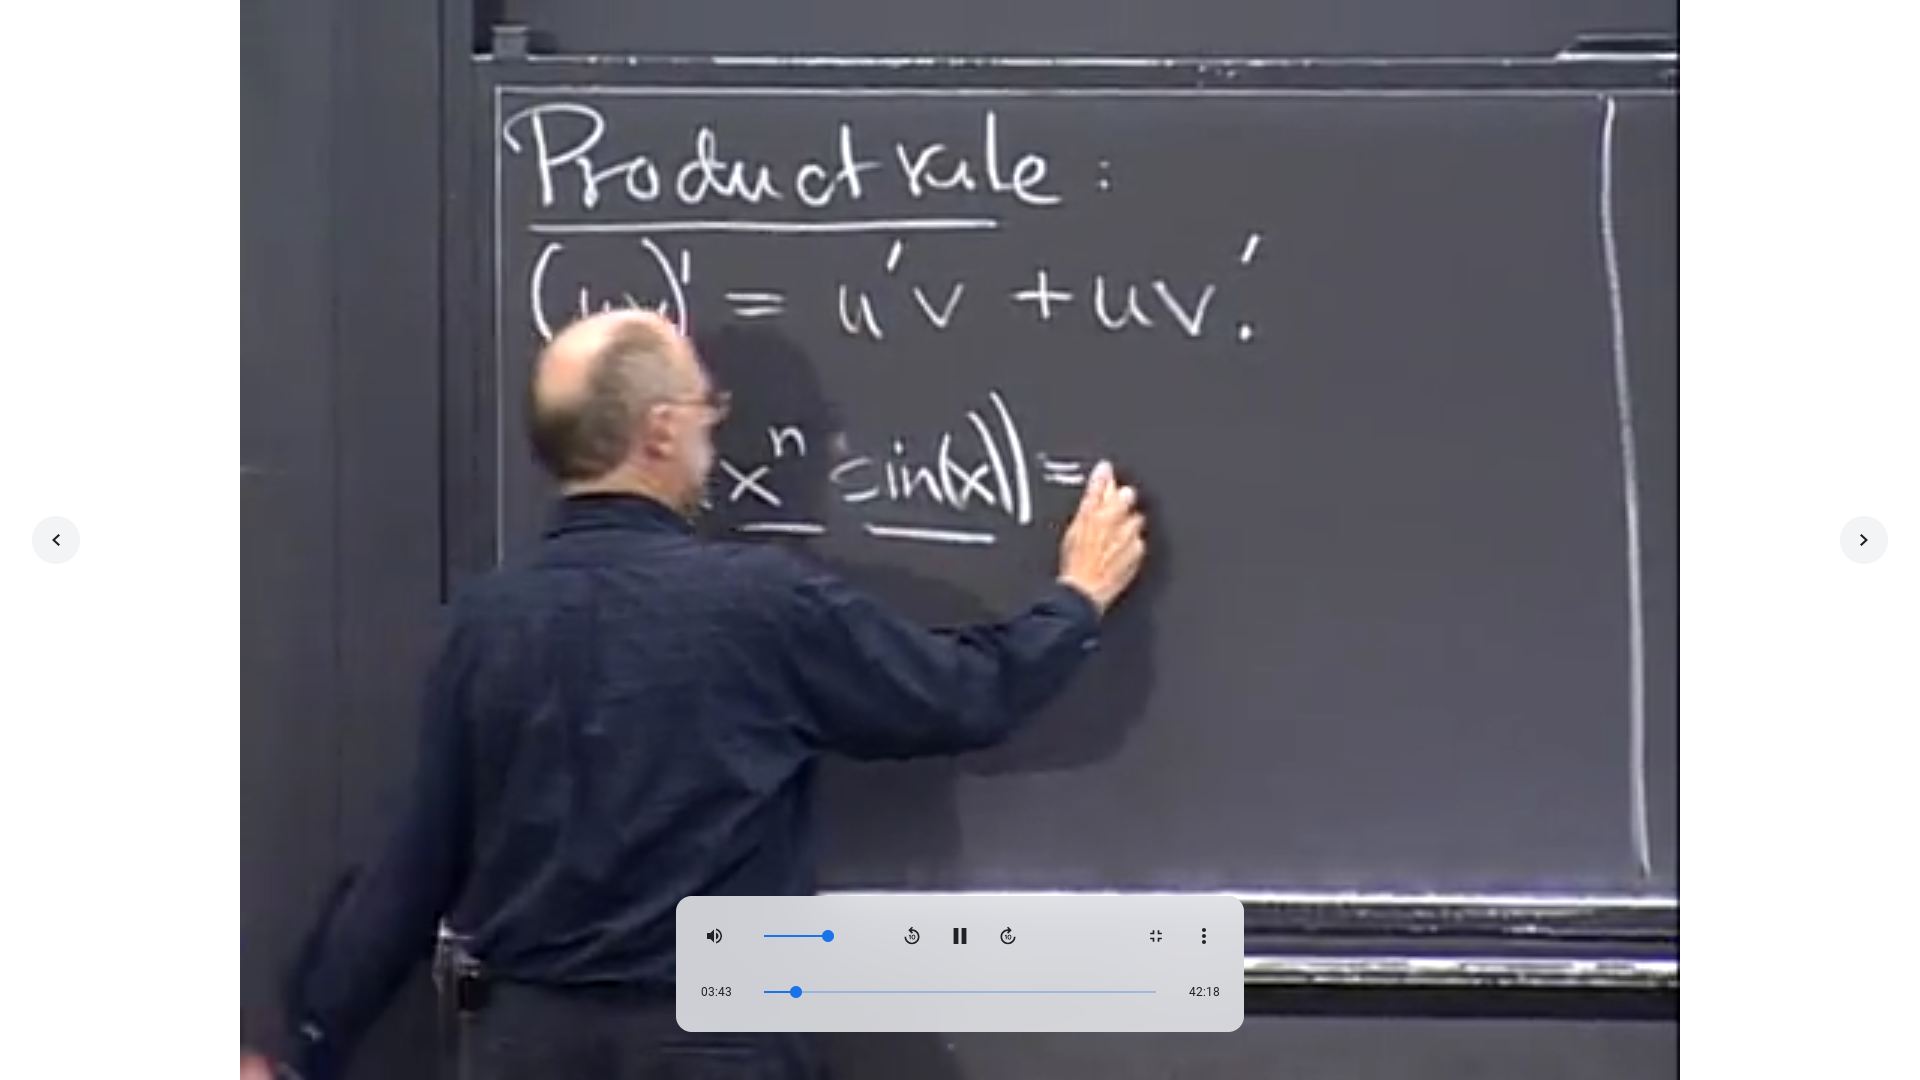 Product rule :
(uv)' = u'v + uv'.
xⁿ sin(x)) =
03:43 42:18